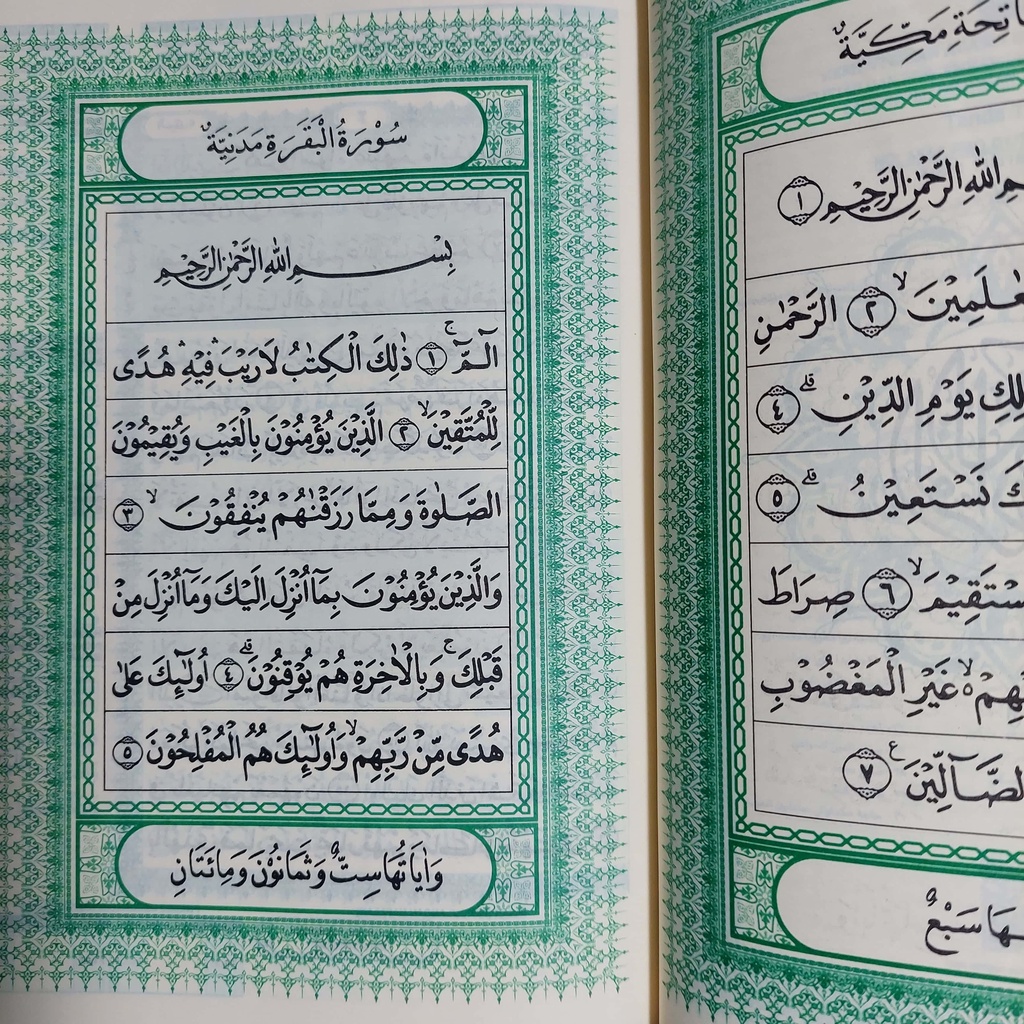 اتِحَةِ مَكِّيَّةٌ
مِ اللهِ الرَّحْمٰنِ الرَّحِيْمِ ١
عٰلَمِيْنَ ۙ ٢ الرَّحْمٰنِ
لِكِ يَوْمِ الدِّيْنِ ۗ ٤
كَ نَسْتَعِيْنُ ۗ ٥
سْتَقِيْمَ ۙ ٦ صِرَاطَ
هِمْ ەۙ غَيْرِ الْمَغْضُوْبِ
الضَّاۤلِّيْنَ ࣖ ٧
هَا سَبْعٌ
سُوْرَةُ الْبَقَرَةِ مَدَنِيَّةٌ
بِسْمِ اللهِ الرَّحْمٰنِ الرَّحِيْمِ
الۤمّۤ ۚ ١ ذٰلِكَ الْكِتٰبُ لَا رَيْبَ ۛ فِيْهِ ۛ هُدًى
لِّلْمُتَّقِيْنَ ۙ ٢ الَّذِيْنَ يُؤْمِنُوْنَ بِالْغَيْبِ وَيُقِيْمُوْنَ
الصَّلٰوةَ وَمِمَّا رَزَقْنٰهُمْ يُنْفِقُوْنَ ۙ ٣
وَالَّذِيْنَ يُؤْمِنُوْنَ بِمَآ اُنْزِلَ اِلَيْكَ وَمَآ اُنْزِلَ مِنْ
قَبْلِكَ ۚ وَبِالْاٰخِرَةِ هُمْ يُوْقِنُوْنَ ۗ ٤ اُولٰۤئِكَ عَلٰى
هُدًى مِّنْ رَّبِّهِمْ ۙ وَاُولٰۤئِكَ هُمُ الْمُفْلِحُوْنَ ٥
وَاٰيَاتُهَا سِتٌّ وَثَمَانُوْنَ وَمِائَتَانِ